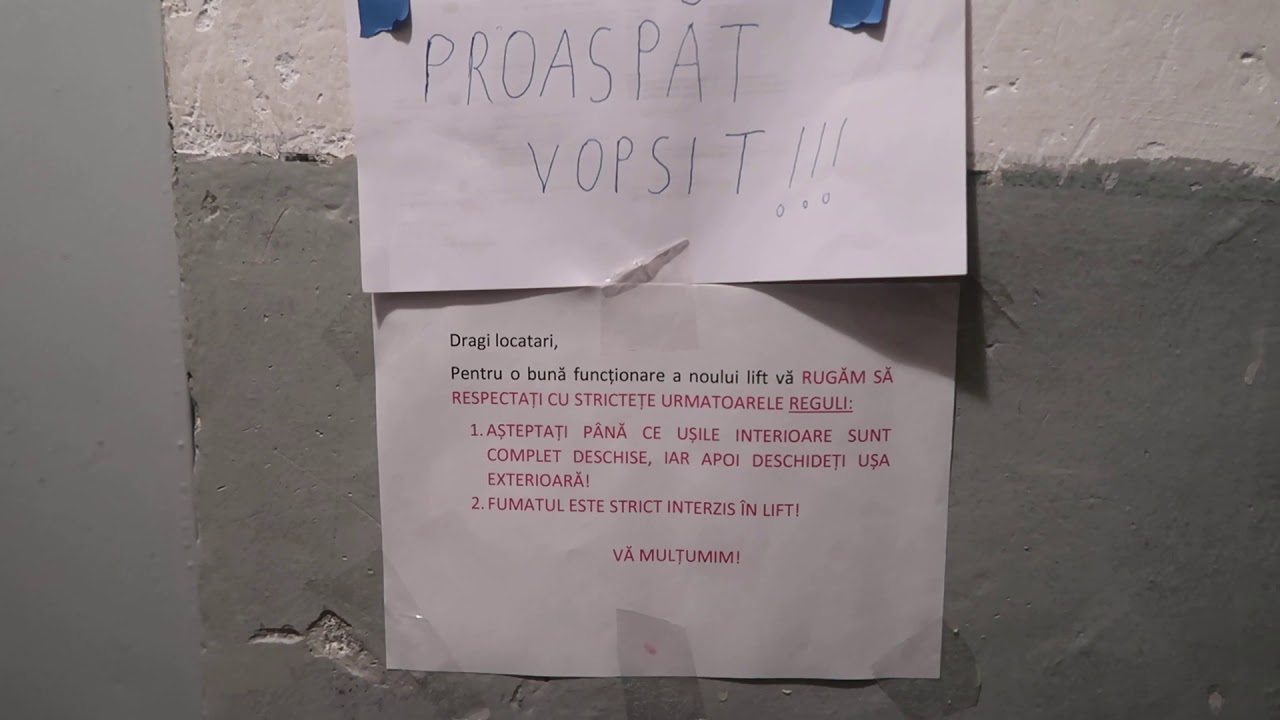 PROASPĂT
VOPSIT!!!
Dragi locatari,
Pentru o bună funcționare a noului lift vă RUGĂM SĂ
RESPECTAȚI CU STRICTEȚE URMATOARELE REGULI:
1. AȘTEPTAȚI PÂNĂ CE UȘILE INTERIOARE SUNT
COMPLET DESCHISE, IAR APOI DESCHIDEȚI UȘA
EXTERIOARĂ!
2. FUMATUL ESTE STRICT INTERZIS ÎN LIFT!
VĂ MULȚUMIM!